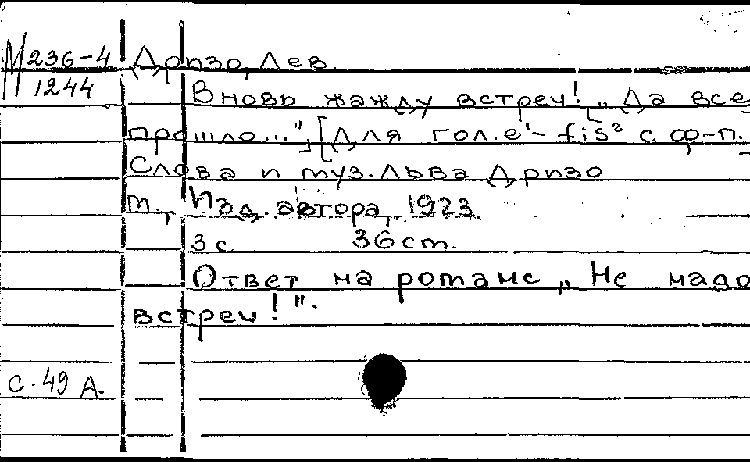 М236-4 Дризо, Лев.
1244 Вновь жажду встреч! „Да все
прошло..." [Для гол. e¹- fis² с ф-п.]
Слова и муз. Льва Дризо
М., Изд. автора, 1923.
3 с. 36 cm.
Ответ на романс „Не надо
встреч!".
С. 49 А.